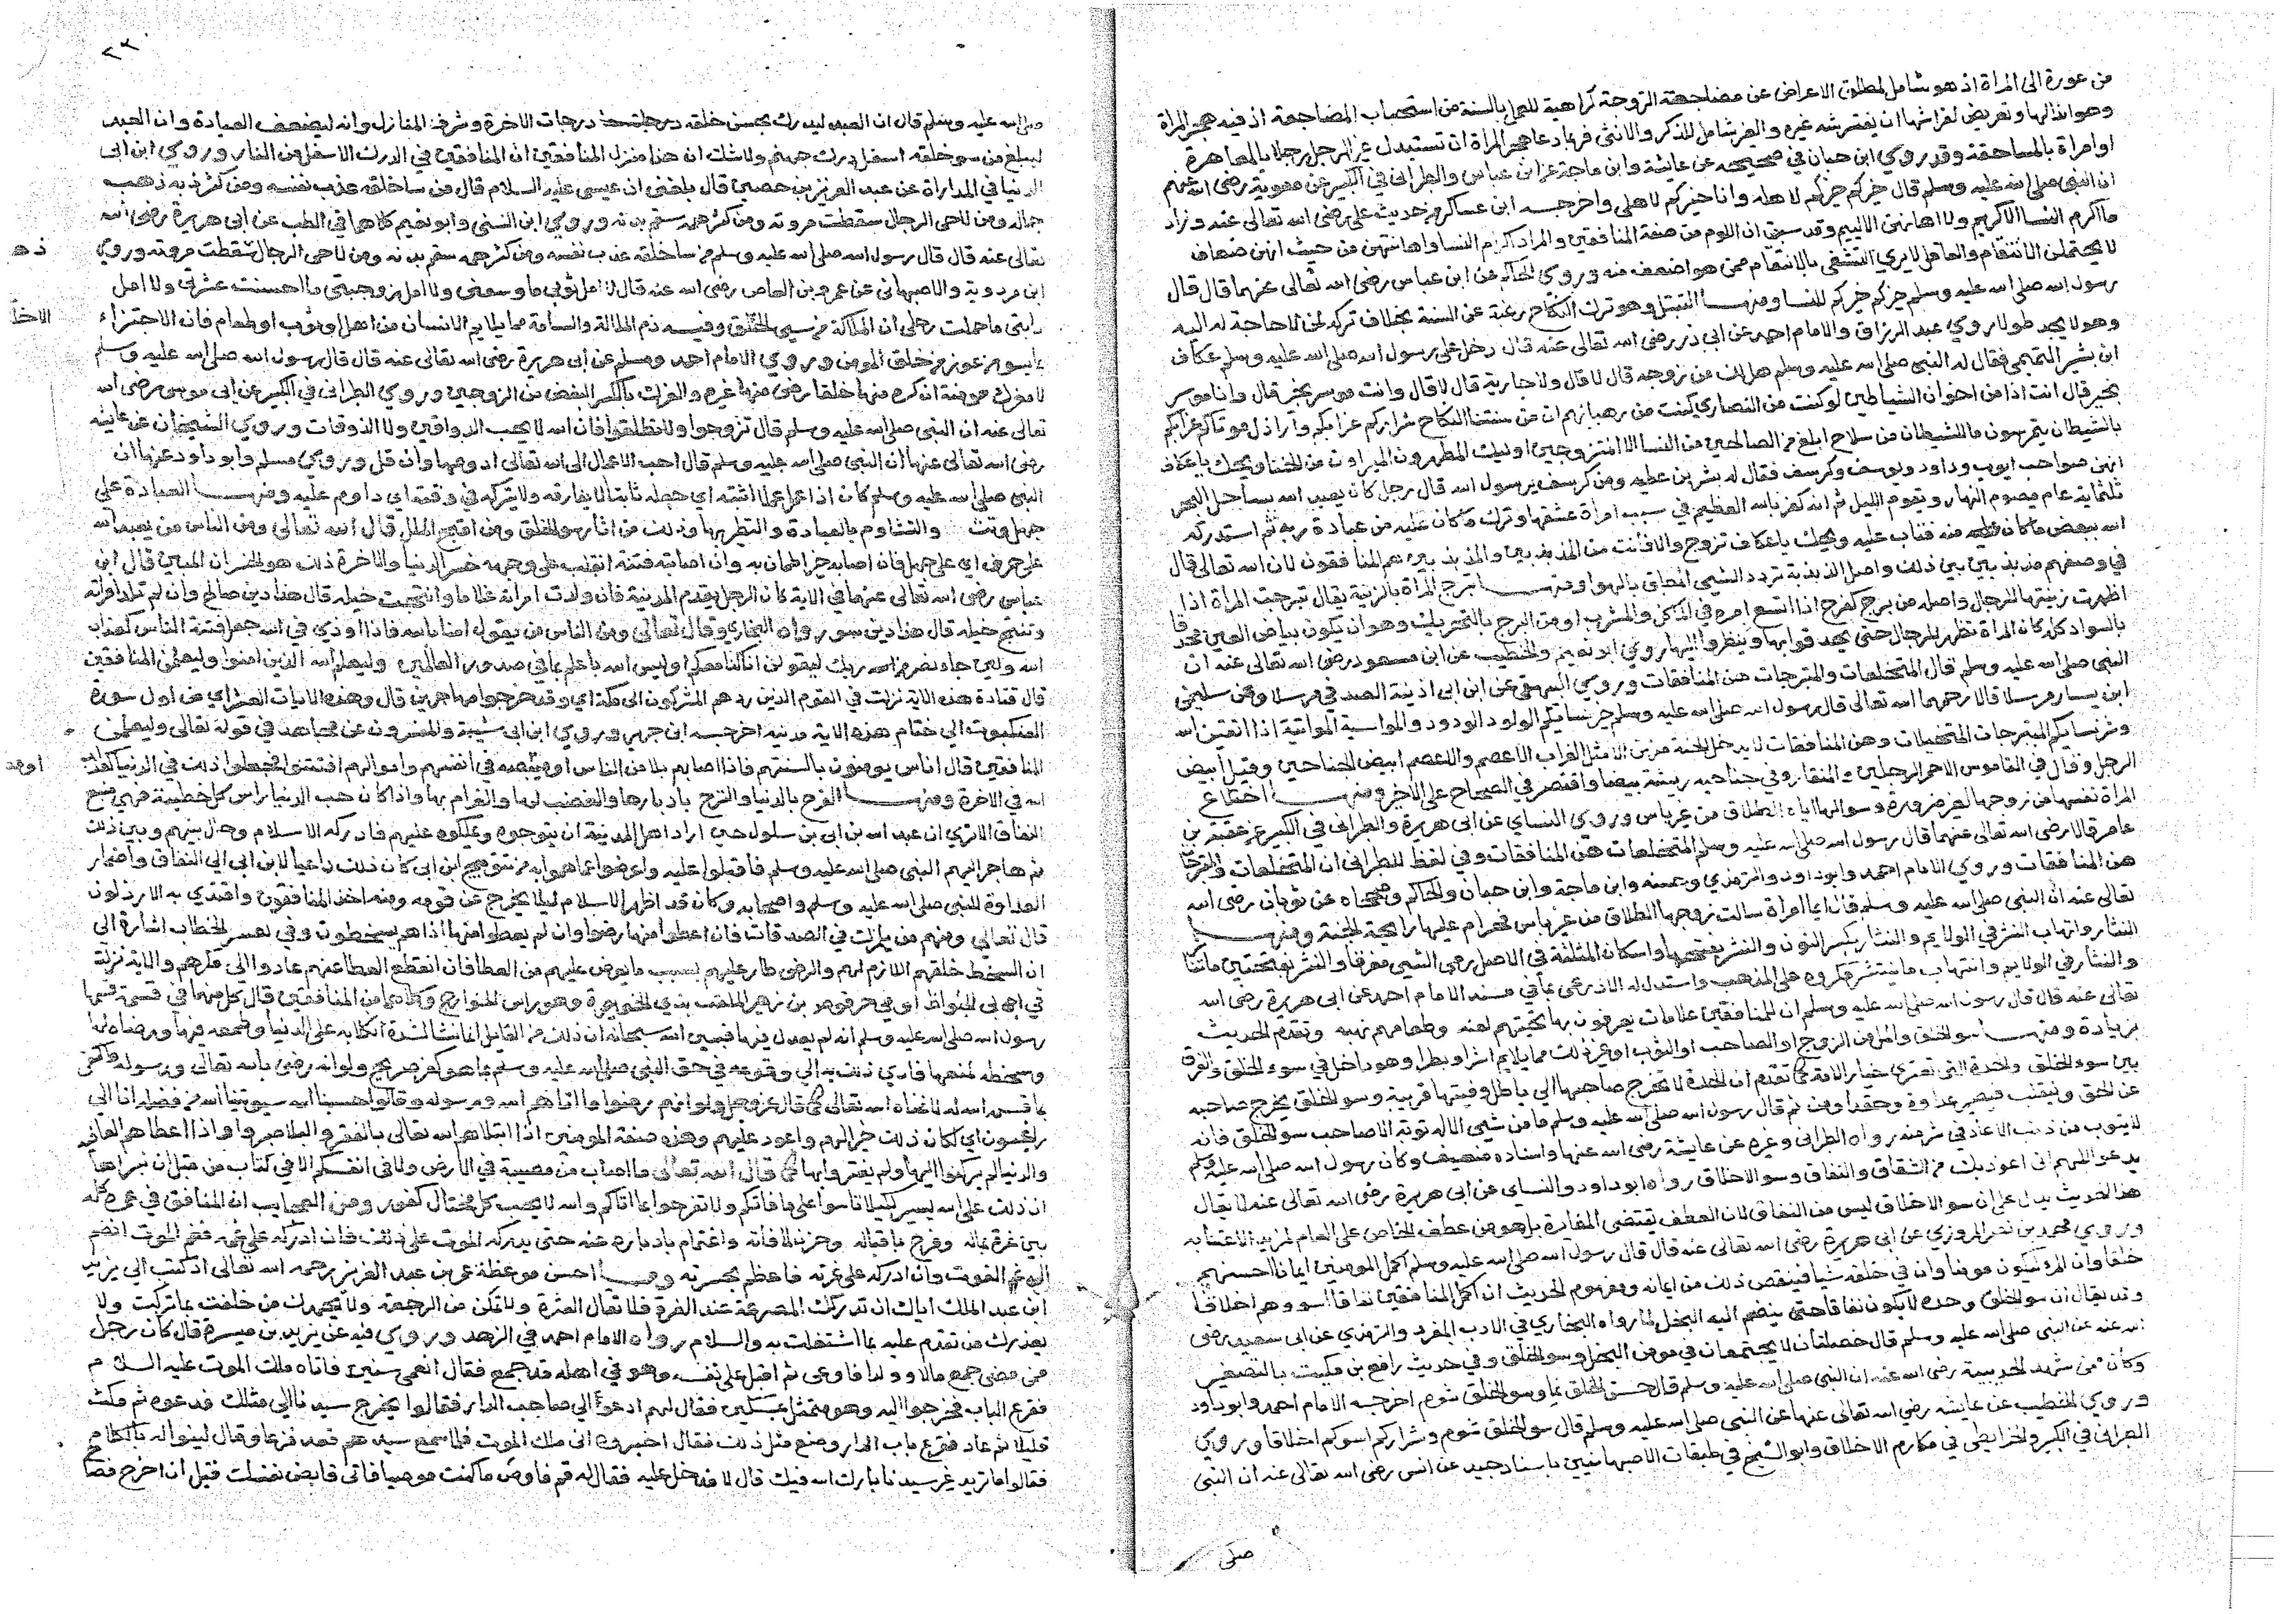 من عورة الى المراة اذ هو شامل لمطلق الاعراض عن مضاجعة الزوجة كراهية للعمل بالسنة من استحباب المضاجعة اذ فيه هجر المراة
وهو اذ الها وتعريض لفراشها ان يفترشه غيره والغير شامل للذكر والانثى فربما دعا هجر المراة ان تستبدل غير الرجل رجلا بالمعاهرة
اوامراة بالمساحقة وقد روي ابن حبان في صحيحه عن عائشة وابن ماجة عن ابن عباس والطبراني في الكبير عن معوية رضى الله عنهم
ان النبى صلى الله عليه وسلم قال خيركم خيركم لاهله وانا خيركم لاهلي واخرجه ابن عساكر من حديث علي رضى الله تعالى عنه وزاد
ما اكرم النسا الا كريم ولا اهانهن الا لييم وقد سبق ان اللوم من صفة المنافقين والمراد اكرام النسا واهانتهن من حيث انهن ضعاف
لا يحتملن الانتقام والعاقل لا يري التشفى بالانتقام ممن هو اضعف منه وروي الحاكم عن ابن عباس رضى الله تعالى عنهما قال قال
رسول الله صلى الله عليه وسلم خيركم خيركم للنسا ومنها التبتل وهو ترك النكاح رغبة عن السنة بخلاف تركه لمن لا حاجة له اليه
وهو لا يجد طولا روي عبد الرزاق والامام احمد عن ابي ذر رضى الله تعالى عنه قال دخل على رسول الله صلى الله عليه وسلم عكاف
ابن بشير التميمى فقال له النبى صلى الله عليه وسلم هل لك من زوجه قال لا قال ولا جارية قال لا قال وانت موسر بخير قال وانا موسر
بخير قال انت اذا من اخوان الشياطين لو كنت من النصاري كنت من رهبانهم ان من سنتنا النكاح شراركم عزابكم واراذل موتاكم عزابكم
بالشيطان تمرسون ما للشيطان من سلاح ابلغ في الصالحين من النسا الا المتزوجين اوليك المطهرون المبراون من الخنا ويحك يا عكاف
انهن صواحب ايوب وداود ويوسف وكرسف فقال له بشر بن عطيه ومن كرسف يرسول الله قال رجل كان يعبد الله بساحل البحر
ثلثماية عام يصوم النهار ويقوم الليل ثم انه كفر بالله العظيم في سبب امراة عشقها وترك ما كان عليه من عبادة ربه ثم استدركه
الله ببعض ما كان منه فتاب عليه ويحك يا عكاف تزوج والا فانت من المذبذبين والمذبذبين هم المنافقون لان الله تعالى قال
في وصفهم مذبذبين بين ذلك واصل الذبذبة تردد الشيى المعلق بالهوا ومنها تبرج المراة بالزينة يقال تبرجت المراة اذا
اظهرت زينتها للرجال واصله من برج كفرح اذا اتسع امره في الاكل والشرب او من البرج بالتحريك وهو ان يكون بياض العين محدقا
بالسواد كله كان المراة تظهر للرجال حتى يحد قوابها وينظروا اليها روي ابو نعيم والخطيب عن ابن مسعود رضى الله تعالى عنه ان
النبى صلى الله عليه وسلم قال المختلعات والمتبرجات هن المنافقات وروي البيهقى عن ابن ابى اذنية الصدفى مرسلا وعن سليمن
ابن يسار مرسلا قالا رحمهما الله تعالى قال رسول الله صلى الله عليه وسلم خير نسايكم الولود الودود والمواسية المواتية اذا اتقين الله
وشر نسايكم المتبرجات المتخيلات وهن المنافقات لا يدخل الجنة منهن الا مثل الغراب الاعصم والاعصم ابيض الجناحين وقيل ابيض
الرجل وقال في القاموس الاحمر الرجلين والمنقار وفى جناحيه ريشة بيضا واقتصر في الصحاح على الاخر ومنها اختلاع
المراة نفسها من زوجها لغير ضرورة وسوالها اياه الطلاق من غير باس وروي النساي عن ابى هريرة والطبرانى في الكبير عن عقبة بن
عامر قالا رضى الله تعالى عنهما قال رسول الله صلى الله عليه وسلم المختلعات هن المنافقات وفي لفظ للطبرانى ان المختلعات والمنتزعات
هن المنافقات وروي الامام احمد وابو داود والترمذي وحسنه وابن ماجة وابن حبان والحاكم وصححاه عن ثوبان رضى الله
تعالى عنه ان النبى صلى الله عليه وسلم قال ايما امراة سالت زوجها الطلاق من غير باس فحرام عليها رايحة الجنة ومنها
النثار وانتهاب النثر في الولايم والنثار بكسر النون والنثر بفتحها واسكان المثلثة في الاصل رمى الشيى متفرقا والنثر بفتحتين ما تناثر
والنثار في الولايم وانتهاب ما ينتثر مكروه على المذهب واستدل له الاذرعى بما في مسند الامام احمد عن ابى هريرة رضى الله
تعالى عنه قال قال رسول الله صلى الله عليه وسلم ان للمنافقين علامات يعرفون بها تحيتهم لعنه وطعامهم نهبه وتقدم الحديث
بزيادة ومنها سو الخلق والملل من الزوج او الصاحب او الثوب او غير ذلك مما يلايم اشرا وبطرا وهو داخل في سوء الخلق والفرق
بين سوء الخلق والحدة التى تعتري خيار الامة كما تقدم ان الحدة لا تخرج صاحبها الي باطل وفيئتها قريبة وسو الخلق يخرج صاحبه
عن الحق وينقلب فيصير عداوة وحقدا ومن ثم قال رسول الله صلى الله عليه وسلم ما من شيى الا له توبة الا صاحب سو الخلق فانه
لا يتوب من ذنب الا عاد في شر منه رواه الطبرانى وغيره عن عايشة رضى الله عنها واسناده ضعيف وكان رسول الله صلى الله عليه وسلم
يدعو اللهم انى اعوذ بك من الشقاق والنفاق وسو الاخلاق رواه ابو داود والنساي عن ابى هريرة رضى الله تعالى عنه لا يقال
هذا الحديث يدل على ان سو الاخلاق ليس من النفاق لان العطف يقتضى المغايرة بل هو من عطف الخاص على العام لمزيد الاعتنا به
وروي محمد بن نصر المروزي عن ابى هريرة رضى الله تعالى عنه قال قال رسول الله صلى الله عليه وسلم اكمل المومنين ايمانا احسنهم
خلقا وان المرء ليكون مومنا وان في خلقه شيا فينقص ذلك من ايمانه ومفهوم الحديث ان اكمل المنافقين نفاقا اسووهم اخلاقا
وقد يقال ان سو الخلق وحده لا يكون نفاقا حتى ينضم اليه البخل لما رواه البخاري في الادب المفرد والترمذي عن ابى سعيد رضى
الله عنه عن النبى صلى الله عليه وسلم قال خصلتان لا يجتمعان في مومن البخل وسو الخلق وفي حديث رافع بن مكيث بالتصغير
وكان ممن شهد الحديبية رضى الله عنه ان النبى صلى الله عليه وسلم قال حسن الخلق نما وسو الخلق شوم اخرجه الامام احمد وابو داود
وروي الخطيب عن عايشه رضى الله تعالى عنها عن النبى صلى الله عليه وسلم قال سو الخلق شوم وشراركم اسوكم اخلاقا وروي
الطبراني في الكبير والخرايطى في مكارم الاخلاق وابو الشيخ في طبقات الاصبهانيين باسناد جيد عن انس رضى الله تعالى عنه ان النبى
صلى
٢٢
صلى الله عليه وسلم قال ان العبد ليدرك بحسن خلقه درجات الاخرة وشرف المنازل وانه ليضعف العبادة وان العبد
ليبلغ من سو خلقه اسفل درك جهنم ولا شك ان هذا منزل المنافقين ان المنافقين في الدرك الاسفل من النار وروي ابن ابى
الدنيا في المداراة عن عبد العزيز بن حصين قال بلغنى ان عيسى عليه السلام قال من سا خلقه عذب نفسه ومن كثر كذبه ذهب
جماله ومن لاحى الرجال سقطت مروته ومن كثر همه سقم بدنه وروي ابن السنى وابو نعيم كلاهما في الطب عن ابى هريرة رضى الله
تعالى عنه قال قال رسول الله صلى الله عليه وسلم من سا خلقه عذب نفسه ومن كثر همه سقم بدنه ومن لاحى الرجال سقطت مروته وروي
ابن مردوية والاصبهانى عن عمرو بن العاص رضى الله عنه قال لا امل ثوبى ما وسعنى ولا امل زوجتى ما احسنت عشرتى ولا امل
دابتى ما حملت رحلى ان الملالة من سيى الخلق وفيه ذم الملالة والسامة مما يلايم الانسان من اهل او ثوب او طعام فان الاجتزاء
بالميسور عن من خلق المومن وروي الامام احمد ومسلم عن ابى هريرة رضى الله تعالى عنه قال قال رسول الله صلى الله عليه وسلم
لا يفرك مومن مومنة ان كره منها خلقا رضى منها غيره والفرك بالكسر البغض من الزوجين وروي الطبرانى في الكبير عن ابى موسى رضى الله
تعالى عنه ان النبى صلى الله عليه وسلم قال تزوجوا ولا تطلقوا فان الله لا يحب الذواقين ولا الذوقات وروي الشيخان عن عايشه
رضى الله تعالى عنها ان النبى صلى الله عليه وسلم قال احب الاعمال الى الله تعالى ادومها وان قل وروي مسلم وابو داود عنها ان
النبى صلى الله عليه وسلم كان اذا عمل عملا اثبته اي جعله ثابتا لا يفارقه ولا يتركه في وقته اي داوم عليه ومنها العبادة على
جهل وشك والتشاوم بالعبادة والتطير بها وذلك من اثار سو الخلق ومن اقبح الملل قال الله تعالى ومن الناس من يعبد الله
على حرف اي على جهل فان اصابه خير اطمان به وان اصابته فتنة انقلب على وجهه خسر الدنيا والاخرة ذلك هو الخسران المبين قال ابن
عباس رضى الله تعالى عنهما في الاية كان الرجل يقدم المدينة فان ولدت امراته غلاما وانتجت خيله قال هذا دين صالح وان لم تلد امراته
وتنتج خيله قال هذا دين سور واه البخاري وقال تعالى ومن الناس من يقول امنا بالله فاذا اوذي في الله جعل فتنة الناس كعذاب
الله ولين جاء نصر من ربك ليقولن انا كنا معكم اوليس الله باعلم بما في صدور العالمين وليعلمن الله الذين امنوا وليعلمن المنافقين
قال قتادة هذه الاية نزلت في القوم الذين ردهم المشركون الى مكة اي وقد خرجوا مهاجرين قال وهذه الايات العشر اي من اول سورة
العنكبوت الى ختام هذه الاية مدنية اخرجه ابن جرير وروي ابن ابى شيبة والمفسرون عن مجاهد في قوله تعالى وليعلمن
المنافقين قال اناس يومنون بالسنتهم فاذا اصابهم بلا من الناس او مصيبة في انفسهم واموالهم افتتنوا فجعلوا ذلك في الدنيا كعذاب
الله في الاخرة ومنها الفرح بالدنيا والترح بادبارها والغضب لها والغرام بها واذا كان حب الدنيا راس كل خطيئة فهى منبع
النفاق الا تري ان عبد الله بن ابى بن سلول حين اراد اهل المدينة ان يتوجوه ويملكوه عليهم فادركه الاسلام وحال بينهم وبين ذلك
ثم هاجر اليهم النبى صلى الله عليه وسلم فاقبلوا عليه واعرضوا عما هموا به من تتويج ابن ابى كان ذلك داعيا لابن ابي الى النفاق واضمار
العداوة للنبى صلى الله عليه وسلم واصحابه وكان قد اظهر الاسلام ليلا يخرج عن قومه ومنه اخذ المنافقون واقتدي به الارذلون
قال تعالى ومنهم من يلمزك في الصدقات فان اعطوا منها رضوا وان لم يعطوا منها اذا هم يسخطون وفي الخطاب اشارة الى
ان السخط خلقهم اللازم لهم والرضى طار عليهم بسبب ما يعرض عليهم من العطا فان انقطع العطا عنهم عادوا الى وكرهم والاية نزلت
في ابى الجواظ او في حرقوص بن زهير الملقب بذي الخويصرة وهو راس الخوارج وكلاهما من المنافقين قال كل منهما في قسمة قسمها
رسول الله صلى الله عليه وسلم انه لم يعدل فيها فبين الله سبحانه ان ذلك من القايل انما نشا لشدة انكبابه على الدنيا وطمعه فيها ورضاه لها
وسخطه لمنعها فادي ذلك به الى وقوعه في حق النبى صلى الله عليه وسلم بما هو كفر صريح ولو انه رضى بالله تعالى وبرسوله واكتفى
بما قسم الله له لاغناه الله تعالى كما قال عز وجل ولو انهم رضوا ما اتاهم الله ورسوله وقالوا حسبنا الله سيوتينا الله من فضله انا الي
راغبون اي لكان ذلك خيرا لهم واعود عليهم وهذه صفة المومنين اذا ابتلاهم الله تعالى بالفقر والبلا صبروا واذا اعطاهم العافية
والدنيا لم يركنوا اليها ولم يغتروا بها كما قال الله تعالى ما اصاب من مصيبة في الارض ولا فى انفسكم الا في كتاب من قبل ان نبراها
ان ذلك على الله يسير لكيلا تاسوا على ما فاتكم ولا تفرحوا بما اتاكم والله لا يحب كل مختال فخور ومن العجايب ان المنافق في عمره كله
بين غرة بماله وفرح باقباله وحزن لفاته واغتمام بادباره عنه حتى يدركه الموت على ذلك فان ادركه على غمه فغم الموت انضم
الى غم الفوت وان ادركه على غرته فاعظم بحسرته وما احسن موعظة عمر بن عبد العزيز رحمه الله تعالى اذ كتب الى يزيد
ابن عبد الملك اياك ان تدركك المصرعة عند الغرة فلا تقال العثرة ولا تمكن من الرجعة ولا يحمدك من خلفت بما تركت ولا
يعذرك من تقدم عليه بما اشتغلت به والسلام رواه الامام احمد في الزهد وروي فيه عن يزيد بن ميسرة قال كان رجل
ممن مضى جمع مالا وولدا فاوعى ثم اقبل على نفسه وهو في اهله قد جمع فقال انعمى سنين فاتاه ملك الموت عليه السلام
فقرع الباب فخرجوا اليه وهو متمثل بمسكين فقال لهم ادعوا الي صاحب الدار فقالوا يخرج سيدنا الى مثلك فدعوه ثم مكث
قليلا ثم عاد فقرع باب الدار وصنع مثل ذلك فقال اخبروه انى ملك الموت فلما سمع سيدهم قعد فزعا وقال لينوا له بالكلام
فقالوا ما تريد غير سيدنا بارك الله فيك قال لا فدخل عليه فقال له قم فاوص ما كنت موصيا فانى قابض نفسك قبل ان اخرج فصاح